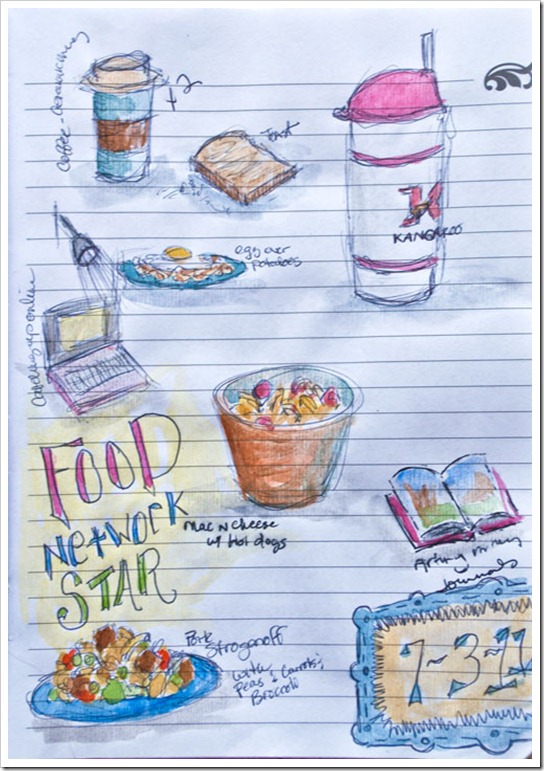 Coffee -
+2
Toast
KANGAROO
egg over
potatoes
Catching up online
FOOD
NETWORK
STAR
mac n cheese
w/ hot dogs
Arting in my
Journals
Pork
Stroganoff
with
Peas & Carrots &
Broccoli
7-3-11